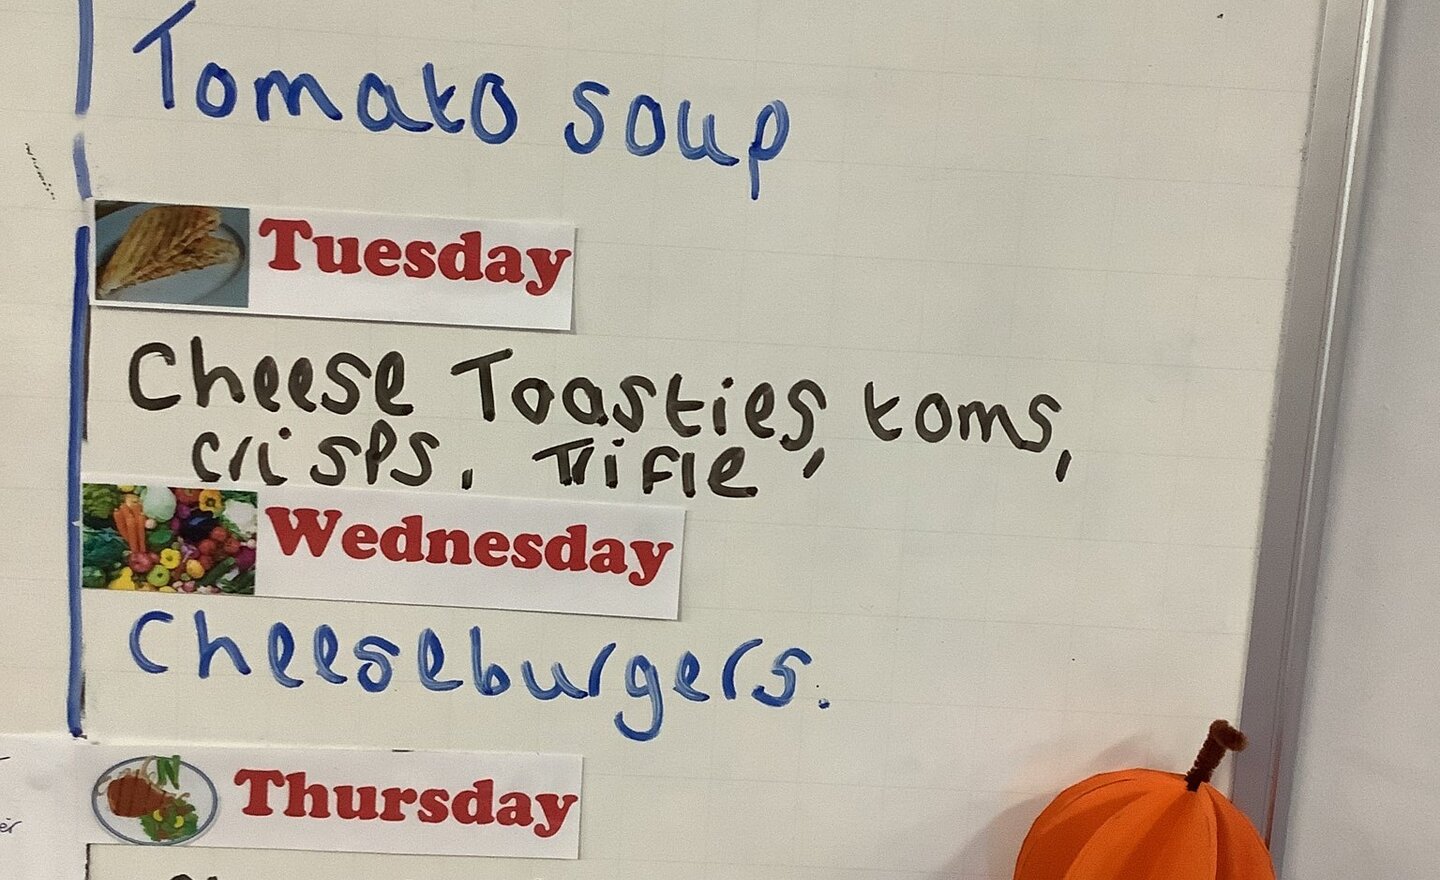 Tomato soup
Tuesday
Cheese Toasties, toms,
crisps, Trifle
Wednesday
Cheeseburgers.
Thursday